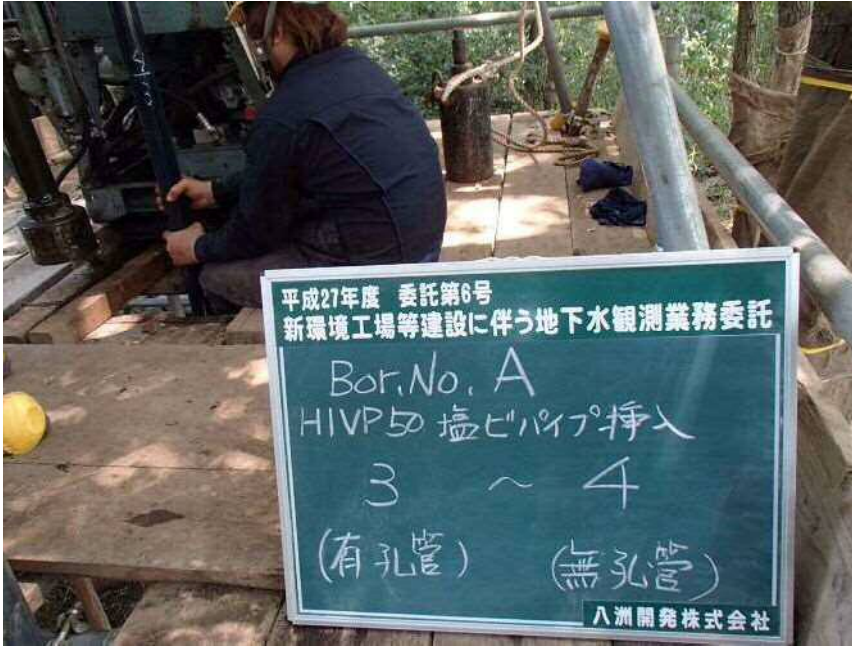 平成27年度 委託第6号
新環境工場等建設に伴う地下水観測業務委託
Bor.No. A
HIVP50 塩ビパイプ挿入
3 ～ 4
(有孔管) (無孔管)
八洲開発株式会社